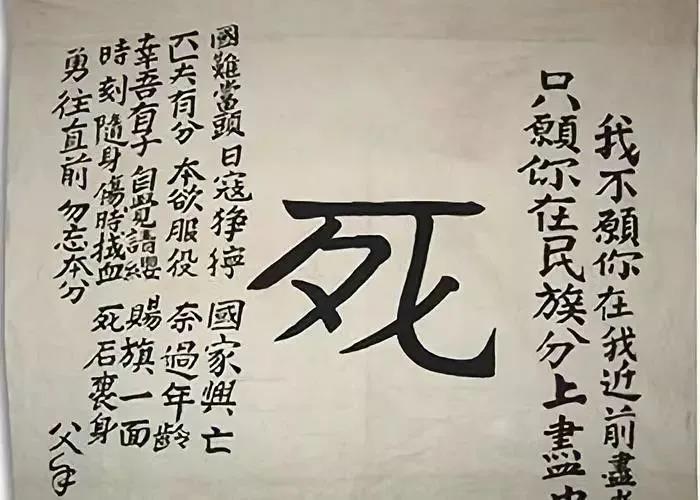 我不願你在我近前盡
只願你在民族分上盡
死
國難當頭 日寇猙獰 國家興亡
匹夫有分 本欲服役 奈過年齡
幸吾有子 自覺請纓 賜旗一面
時刻隨身 傷時拭血 死后裹身
勇往直前 勿忘本分
父